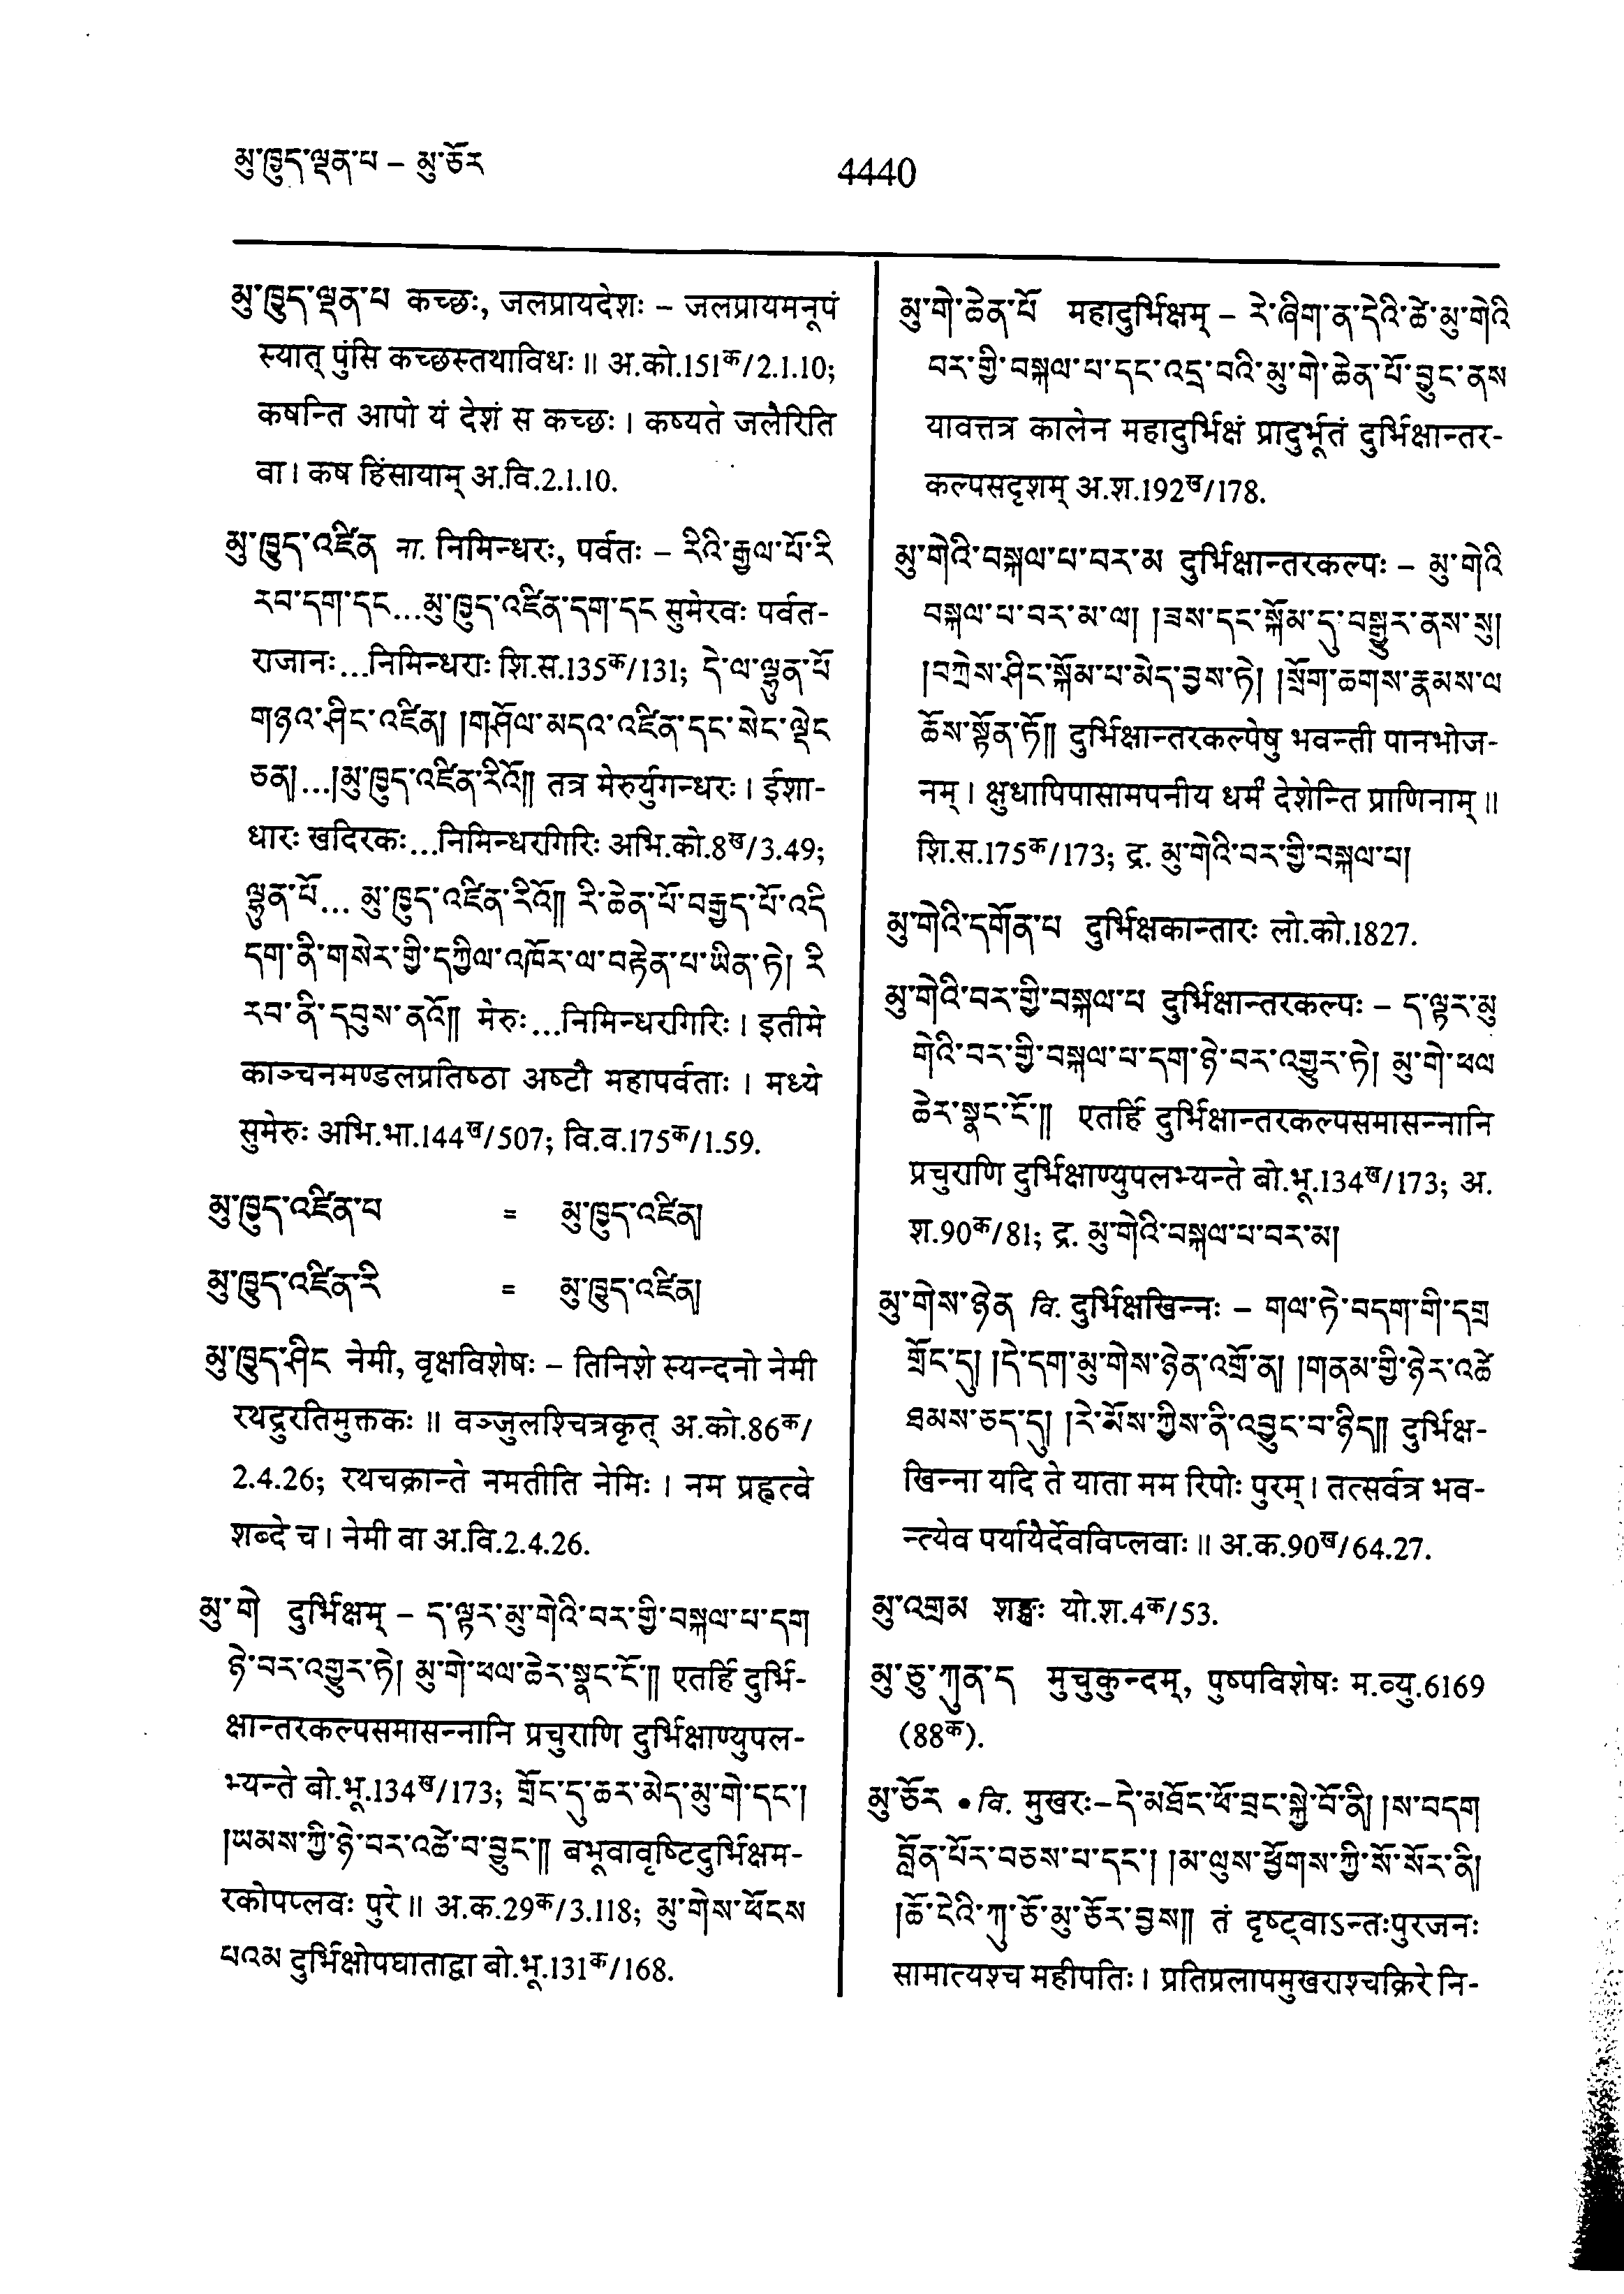 མུ་ཁྱུད་ལྡན་པ – མུ་ཅོར
4440
མུ་ཁྱུད་ལྡན་པ कच्छः, जलप्रायदेशः – जलप्रायमनूपं
स्यात् पुंसि कच्छस्तथाविधः॥ अ.को.151क/2.1.10;
कषन्ति आपो यं देशं स कच्छः। कष्यते जलैरिति
वा। कष हिंसायाम् अ.वि.2.1.10.
མུ་ཁྱུད་འཛིན ना. निमिन्धरः, पर्वतः – རིའི་རྒྱལ་པོ་རི
རབ་དག་དང...མུ་ཁྱུད་འཛིན་དག་དང सुमेरवः पर्वत-
राजानः...निमिन्धराः शि.स.135क/131; དེ་ལ་ལྷུན་པོ
གཉའ་ཤིང་འཛིན། །གཤོལ་མདའ་འཛིན་དང་སེང་ལྡེང
ཅན།...།མུ་ཁྱུད་འཛིན་རིའོ།། तत्र मेरुर्युगन्धरः। ईशा-
धारः खदिरकः...निमिन्धरगिरिः अभि.को.8ख/3.49;
ལྷུན་པོ... མུ་ཁྱུད་འཛིན་རིའོ།། རི་ཆེན་པོ་བརྒྱད་པོ་འདི
དག་ནི་གསེར་གྱི་དཀྱིལ་འཁོར་ལ་བརྟེན་པ་ཡིན་ཏེ། རི
རབ་ནི་དབུས་ནའོ།། मेरुः...निमिन्धरगिरिः। इतीमे
काञ्चनमण्डलप्रतिष्ठा अष्टौ महापर्वताः। मध्ये
सुमेरुः अभि.भा.144ख/507; वि.व.175क/1.59.
མུ་ཁྱུད་འཛིན་པ = མུ་ཁྱུད་འཛིན།
མུ་ཁྱུད་འཛིན་རི = མུ་ཁྱུད་འཛིན།
མུ་ཁྱུད་ཤིང नेमी, वृक्षविशेषः – तिनिशे स्यन्दनो नेमी
रथद्रुरतिमुक्तकः॥ वञ्जुलश्चित्रकृत् अ.को.86क/
2.4.26; रथचक्रान्ते नमतीति नेमिः। नम प्रह्वत्वे
शब्दे च। नेमी वा अ.वि.2.4.26.
མུ་གེ दुर्भिक्षम् – ད་ལྟར་མུ་གེའི་བར་གྱི་བསྐལ་པ་དག
ཉེ་བར་འགྱུར་ཏེ། མུ་གེ་ཕལ་ཆེར་སྣང་ངོ་།། एतर्हि दुर्भि-
क्षान्तरकल्पसमासन्नानि प्रचुराणि दुर्भिक्षाण्युपल-
भ्यन्ते बो.भू.134ख/173; གྲོང་དུ་ཆར་མེད་མུ་གེ་དང་།
།ཡམས་ཀྱི་ཉེ་བར་འཚེ་བ་བྱུང་།། बभूवावृष्टिदुर्भिक्षम-
रकोपप्लवः पुरे॥ अ.क.29क/3.118; མུ་གེས་ཕོངས
པའམ दुर्भिक्षोपघाताद्वा बो.भू.131क/168.
མུ་གེ་ཆེན་པོ महादुर्भिक्षम् – རེ་ཞིག་ན་དེའི་ཚེ་མུ་གེའི
བར་གྱི་བསྐལ་པ་དང་འདྲ་བའི་མུ་གེ་ཆེན་པོ་བྱུང་ནས
यावत्तत्र कालेन महादुर्भिक्षं प्रादुर्भूतं दुर्भिक्षान्तर-
कल्पसदृशम् अ.श.192ख/178.
མུ་གེའི་བསྐལ་པ་བར་མ दुर्भिक्षान्तरकल्पः – མུ་གེའི
བསྐལ་པ་བར་མ་ལ། །ཟས་དང་སྐོམ་དུ་བསྒྱུར་ནས་སུ།
།བཀྲེས་ཤིང་སྐོམ་པ་མེད་བྱས་ཏེ། །སྲོག་ཆགས་རྣམས་ལ
ཆོས་སྟོན་ཏོ།། दुर्भिक्षान्तरकल्पेषु भवन्ती पानभोज-
नम्। क्षुधापिपासामपनीय धर्मं देशेन्ति प्राणिनाम्॥
शि.स.175क/173; द्र. མུ་གེའི་བར་གྱི་བསྐལ་པ།
མུ་གེའི་དགོན་པ दुर्भिक्षकान्तारः लो.को.1827.
མུ་གེའི་བར་གྱི་བསྐལ་པ दुर्भिक्षान्तरकल्पः – ད་ལྟར་མུ
གེའི་བར་གྱི་བསྐལ་པ་དག་ཉེ་བར་འགྱུར་ཏེ། མུ་གེ་ཕལ
ཆེར་སྣང་ངོ་།། एतर्हि दुर्भिक्षान्तरकल्पसमासन्नानि
प्रचुराणि दुर्भिक्षाण्युपलभ्यन्ते बो.भू.134ख/173; अ.
श.90क/81; द्र. མུ་གེའི་བསྐལ་པ་བར་མ།
མུ་གེས་ཉེན वि. दुर्भिक्षखिन्नः – གལ་ཏེ་བདག་གི་དགྲ
གྲོང་དུ། །དེ་དག་མུ་གེས་ཉེན་འགྲོ་ན། །གནམ་གྱི་ཉེར་འཚེ
ཐམས་ཅད་དུ། །རེ་མོས་ཀྱིས་ནི་འབྱུང་བ་ཉིད།། दुर्भिक्ष-
खिन्ना यदि ते याता मम रिपोः पुरम्। तत्सर्वत्र भव-
न्त्येव पर्यायैर्दैवविप्लवाः॥ अ.क.90ख/64.27.
མུ་འགྲམ शङ्खः यो.श.4क/53.
མུ་ཅུ་ཀུན་ད मुचुकुन्दम्, पुष्पविशेषः म.व्यु.6169
(88क).
མུ་ཅོར • वि. मुखरः–དེ་མཐོང་ཕོ་བྲང་སྐྱེ་བོ་ནི། །ས་བདག
བློན་པོར་བཅས་པ་དང་། །མ་ལུས་ཕྱོགས་ཀྱི་སོ་སོར་ནི།
།ཆོ་ངེའི་ཀུ་ཅོ་མུ་ཅོར་བྱས།། तं दृष्ट्वाऽन्तःपुरजनः
सामात्यश्च महीपतिः। प्रतिप्रलापमुखराश्चक्रिरे नि-